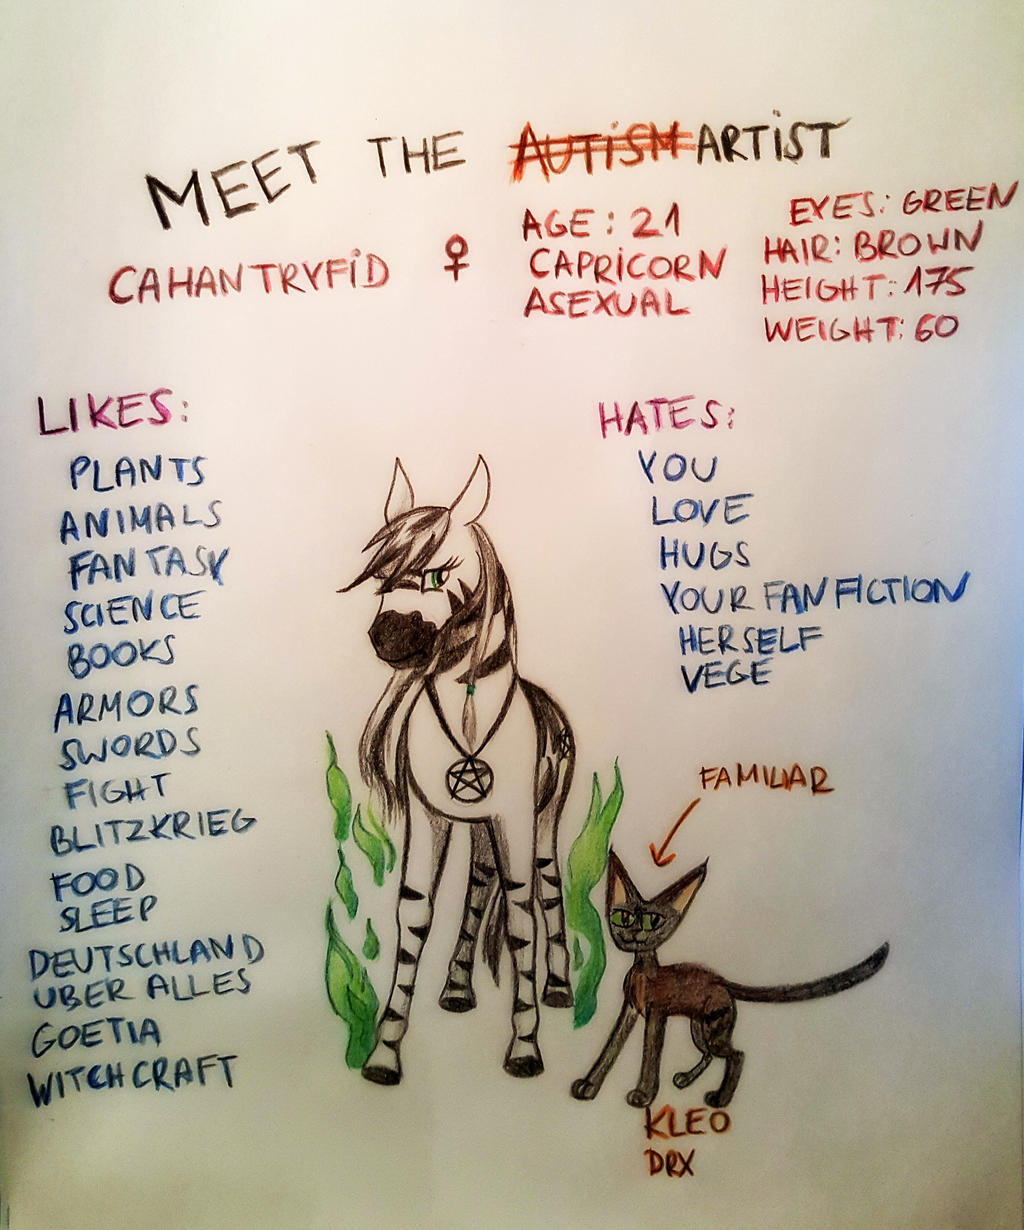 MEET THE AUTISM ARTIST
CAHANTRYFID ♀
AGE: 21
CAPRICORN
ASEXUAL
EYES: GREEN
HAIR: BROWN
HEIGHT: 175
WEIGHT: 60
LIKES:
PLANTS
ANIMALS
FANTASY
SCIENCE
BOOKS
ARMORS
SWORDS
FIGHT
BLITZKRIEG
FOOD
SLEEP
DEUTSCHLAND
UBER ALLES
GOETIA
WITCHCRAFT
HATES:
YOU
LOVE
HUGS
YOUR FANFICTION
HERSELF
VEGE
FAMILIAR
KLEO
DRX